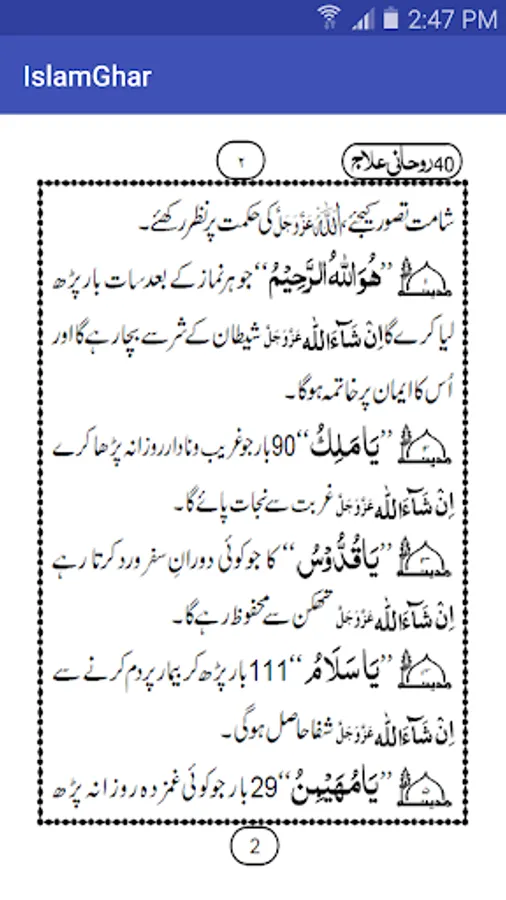 2:47 PM
IslamGhar
40 روحانی علاج
۲
شامت تصور کیجئے، اللہ عَزَّوَجَلَّ کی حکمت پر نظر رکھئے۔
”هُوَ اللهُ الرَّحِيْمُ“ جو ہر نماز کے بعد سات بار پڑھ
لیا کرے گا اِنْ شَآءَ اللہ عَزَّوَجَلَّ شیطان کے شر سے بچا رہے گا اور
اُس کا ایمان پر خاتمہ ہوگا۔
”يَا مَلِكُ“ 90 بار جو غریب و نادار روزانہ پڑھا کرے
اِنْ شَآءَ اللہ عَزَّوَجَلَّ غربت سے نجات پائے گا۔
”يَا قُدُّوْسُ“ کا جو کوئی دورانِ سفر ورد کرتا رہے
اِنْ شَآءَ اللہ عَزَّوَجَلَّ تھکن سے محفوظ رہے گا۔
”يَا سَلَامُ“ 111 بار پڑھ کر بیمار پر دم کرنے سے
اِنْ شَآءَ اللہ عَزَّوَجَلَّ شفا حاصل ہوگی۔
”يَا مُهَيْمِنُ“ 29 بار جو کوئی غمزدہ روزانہ پڑھ
2